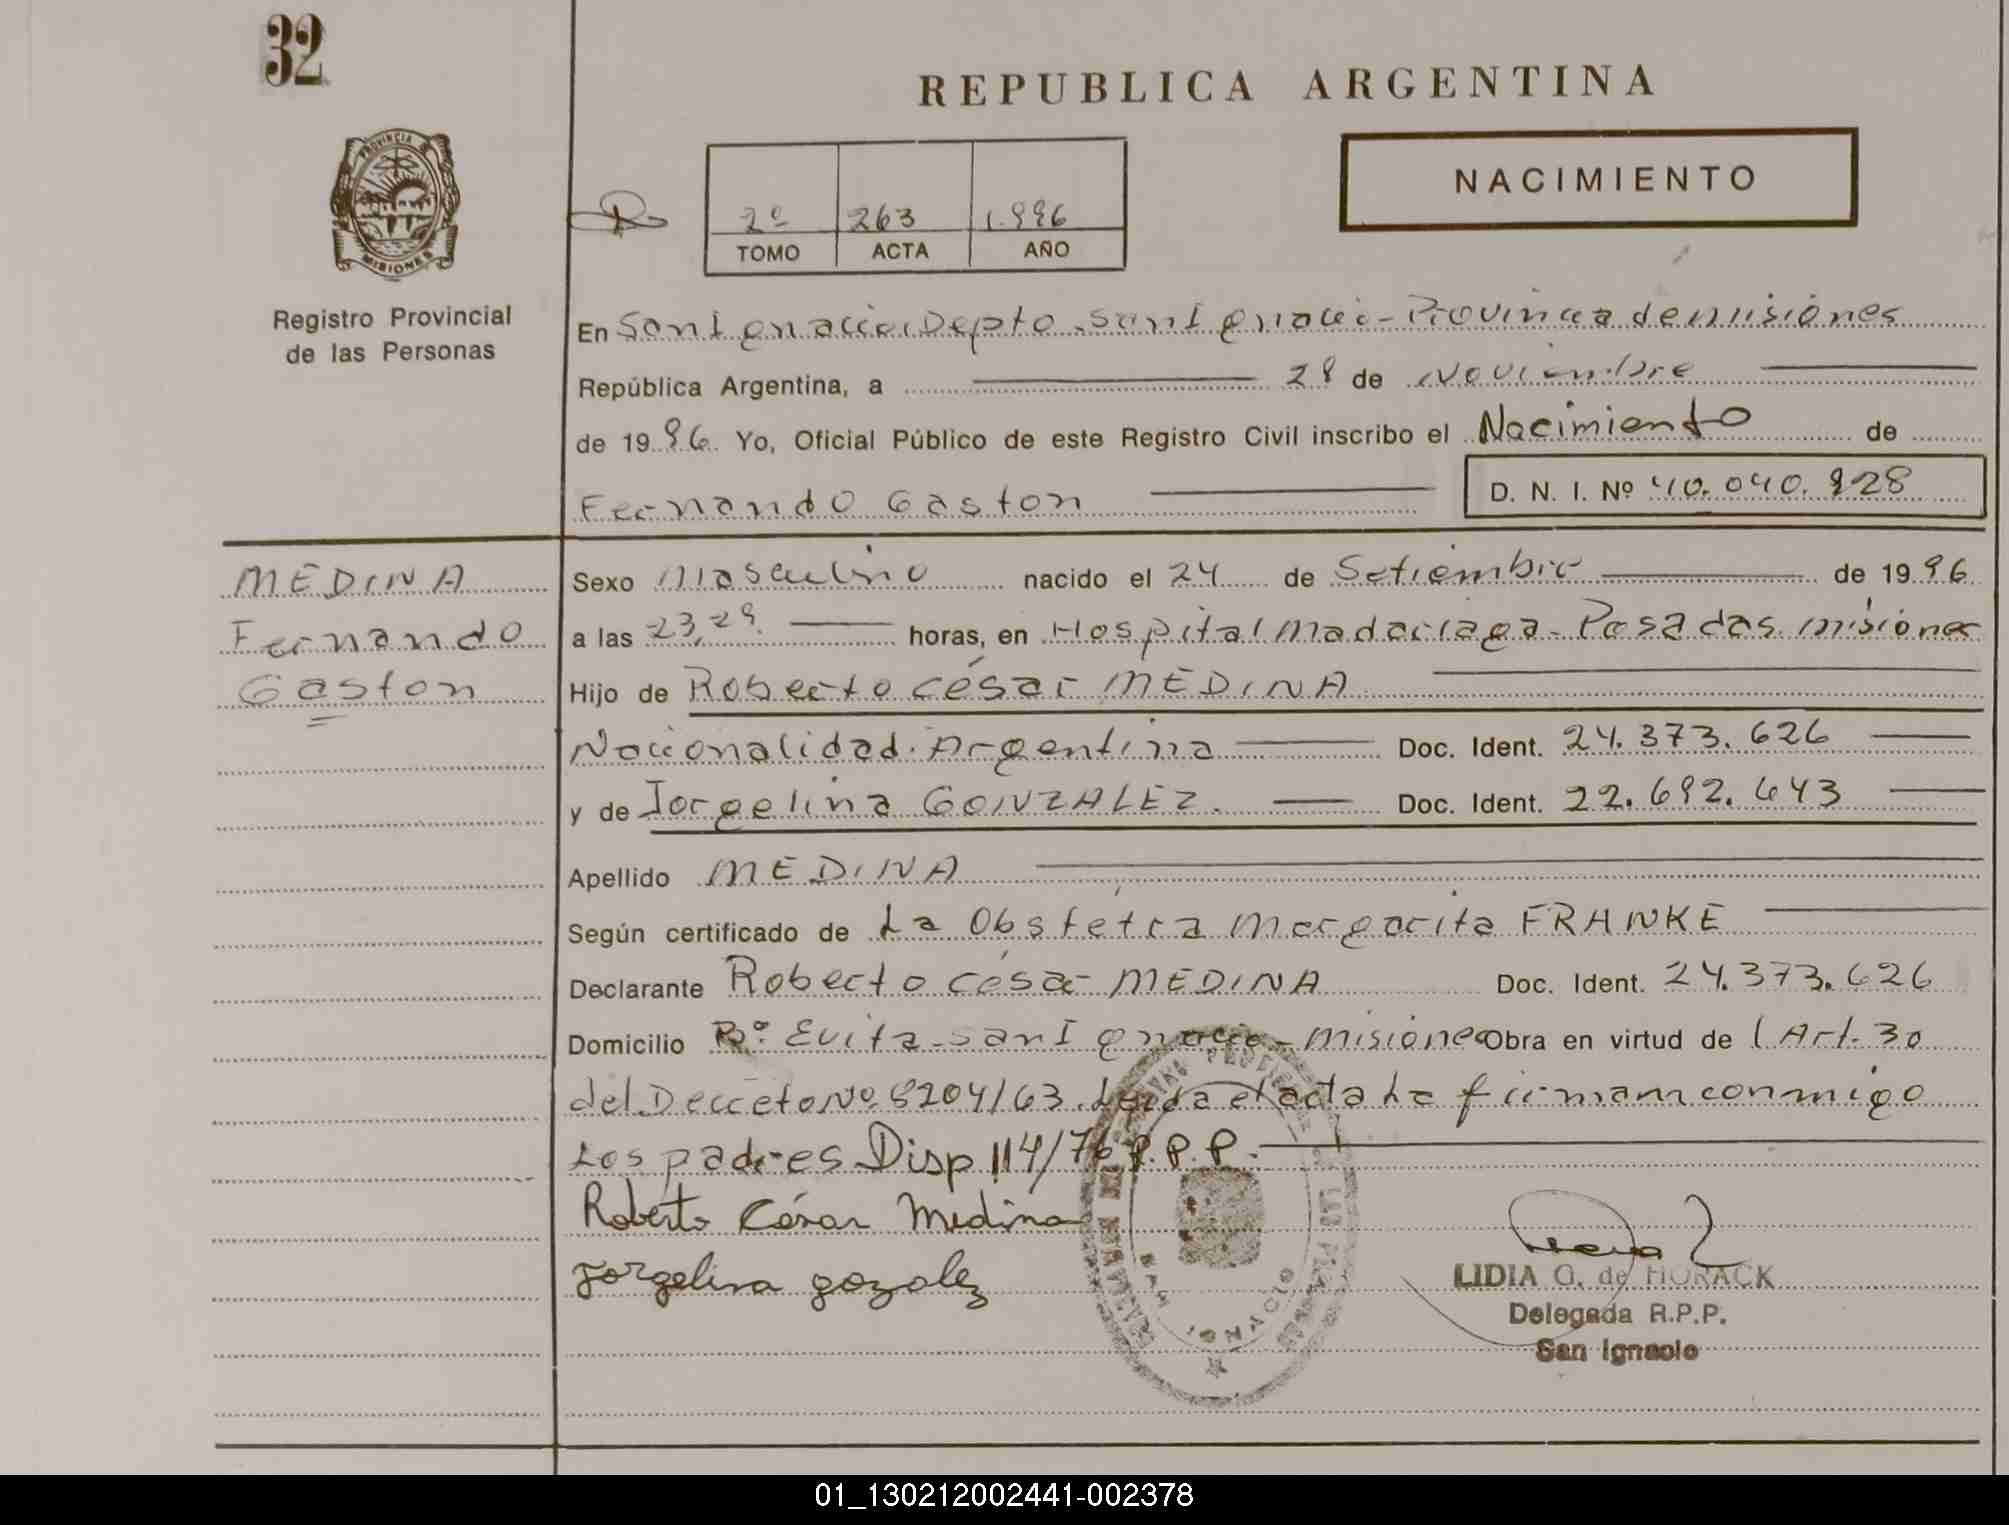 32
REPUBLICA ARGENTINA
PROVINCIA DE
MISIONES
Registro Provincial
de las Personas
NACIMIENTO
2º 263 1.996
TOMO ACTA AÑO
En San Ignacio, Depto. San Ignacio - Provincia de misiones
República Argentina, a 28 de Noviembre
de 19 96 Yo, Oficial Público de este Registro Civil inscribo el Nacimiento de
Fernando Gaston D. N. I. Nº 40.040.928
MEDINA
Fernando
Gaston
Sexo masculino nacido el 24 de Setiembre de 19 96
a las 23,29. horas, en Hospital Madariaga - Posadas misiones
Hijo de Roberto César MEDINA
Nacionalidad Argentina Doc. Ident. 24.373.626
y de Jorgelina GONZALEZ. Doc. Ident. 22.692.643
Apellido MEDINA
Según certificado de La Obstétra Margarita FRANKE
Declarante Roberto César MEDINA Doc. Ident. 24.373.626
Domicilio Bº Evita - San Ignacio - misiones Obra en virtud del Art. 30
del Decreto Nº 8204/63. Leida el acta La firman conmigo
Los padres Disp 114/76 R.P.P.
Roberto César Medina
Jorgelina gozalez
SAN IGNACIO
LIDIA G. de HORACK
Delegada R.P.P.
San Ignacio
01_130212002441-002378